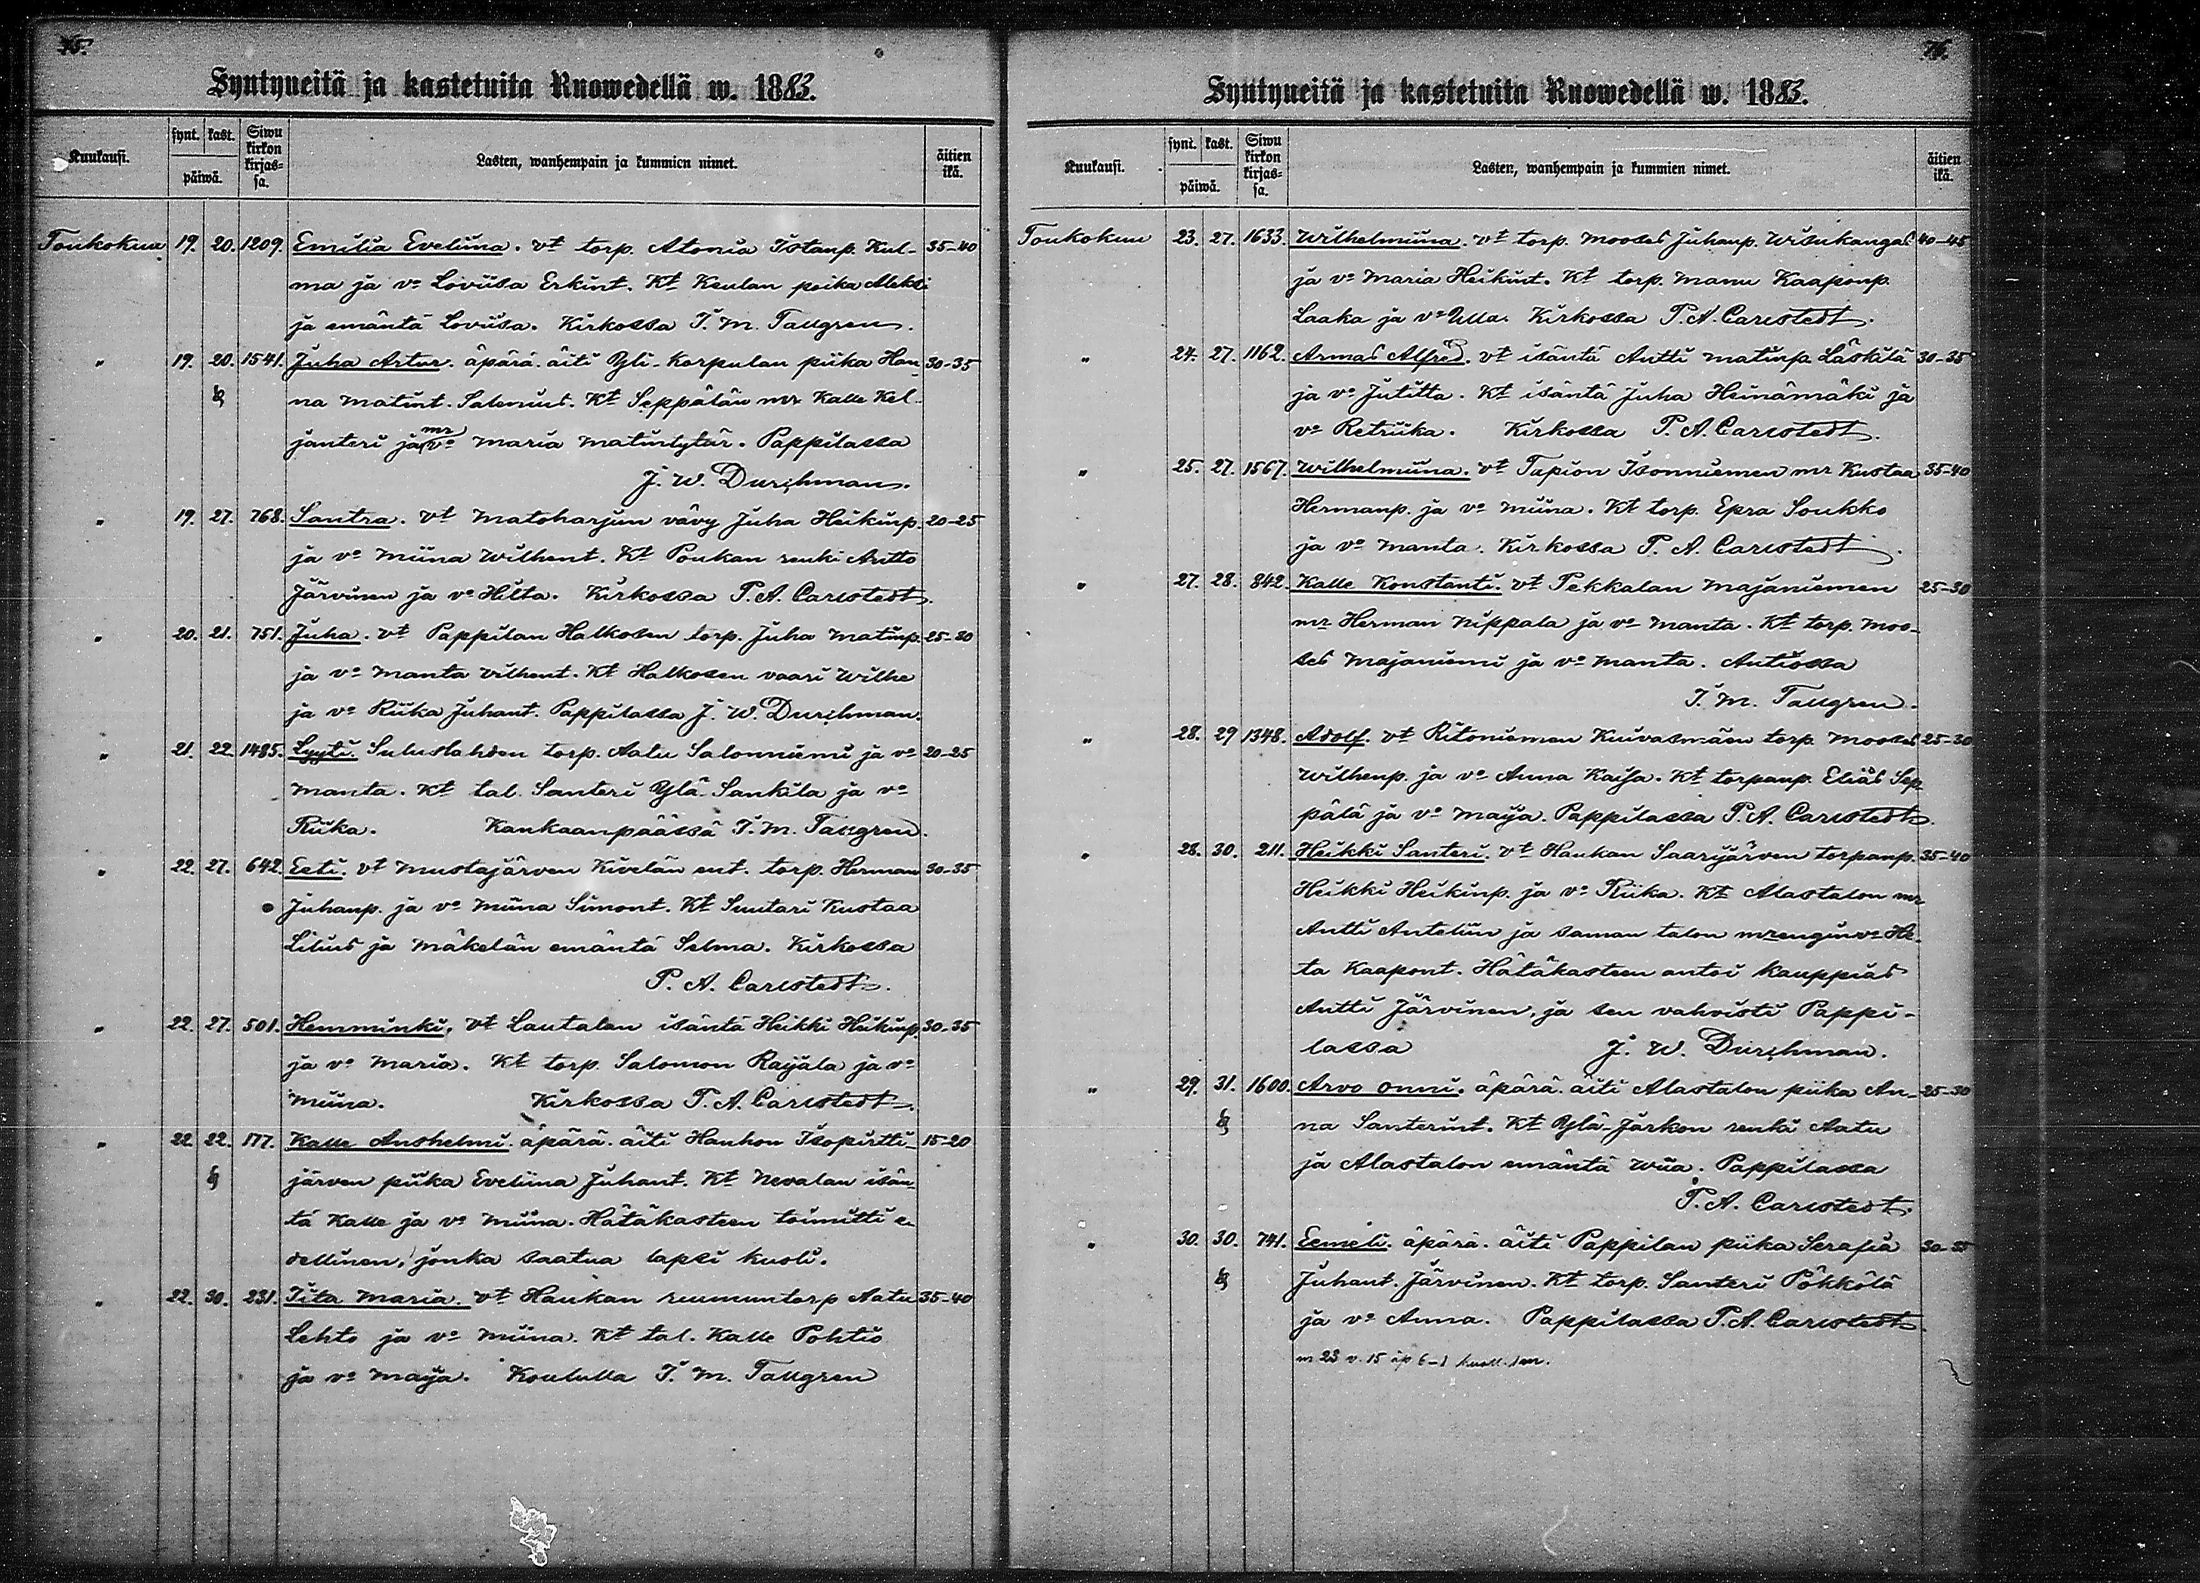 75.
Syntyneitä ja kastetuita Ruowedellä w. 1883.
Kuukausi. synt. kast. päiwä. Siwu kirkon kirjas=sa. Lasten, wanhempain ja kummien nimet. äitien ikä.
Toukokuu 19. 20. 1209. Emilia Eveliina. vt torp. Atonia Istanp. Kul- 35-40
ma ja vo Loviisa Erkint. Kt Keulan poika Aleksi
ja emäntä Loviisa. Kirkossa I. M. Tallgren.
" 19. 20. 1541. Juha Artur. äpärä. äiti Yli-Korpulan piika Han- 30-35
na Matint. Salenius. Kt Seppälän mr Kalle Kel-
janteri ja mr vo Maria Matintytär. Pappilassa
J. W. Durchman.
" 19. 27. 768. Santra. vt Matoharjun vävy Juha Heikinp. 20-25
ja vo Miina Wilhent. Kt Poukan renki Artto
Järvinen ja vo Hilta. Kirkossa P. A. Carlstedt.
" 20. 21. 751. Juha. vt Pappilan Halkosen torp. Juha Matinp. 25-30
ja vo Manta Vilhent. Kt Halkosen vaari Wilhe
ja vo Riika Juhant. Pappilassa J. W. Durchman.
" 21. 22. 1485. Lyyti. Suluslahden torp. Aatu Salonniemi ja vo 20-25
Manta. Kt tal. Santeri Ylä-Sankila ja vo
Riika. Kankaanpäässä I. M. Tallgren.
" 22. 27. 642. Eeti. vt Mustajärven Kivelän ent. torp. Herman 30-35
Juhanp. ja vo Miina Simont. Kt Suutari Kustaa
Lilius ja Mäkelän emäntä Selma. Kirkossa
P. A. Carlstedt.
" 22. 27. 501. Hemminki, vt Lautalan isäntä Heikki Heikinp. 30-35
ja vo Maria. Kt torp. Salomon Raijala ja vo
Miina. Kirkossa P. A. Carlstedt.
" 22. 22. 177. Kalle Anshelmi. äpärä. äiti Hanhon Isopirtti- 15-20
järven piika Eveliina Juhant. Kt Nevalan isän-
tä Kalle ja vo Miina. Hätäkasteen toimitti e-
dellinen, jonka saatua lapsi kuoli.
" 22. 30. 231. Iita Maria. vt Haukan ruumuntorp Aatu 35-40
Lehto ja vo Miina. Kt tal. Kalle Pohtio
ja vo Maija. Koululla I. M. Tallgren
76.
Syntyneitä ja kastetuita Ruowedellä w. 1883.
Kuukausi. synt. kast. päiwä. Siwu kirkon kirjas=sa. Lasten, wanhempain ja kummien nimet. äitien ikä.
Toukokuu 23. 27. 1633. Wilhelmiina. vt torp. Mooses Juhanp. Wisukangas 40-45
ja vo Maria Heikint. Kt torp. Manu Kaaponp.
Laaka ja vo Ulla. Kirkossa P. A. Carlstedt.
" 24. 27. 1162. Armas Alfred. vt isäntä Antti Matinp. Läskilä 30-35
ja vo Jutitta. Kt isäntä Juha Heinämäki ja
vo Retriika. Kirkossa P. A. Carlstedt.
" 25. 27. 1567. Wilhelmiina. vt Tapion Isonniemen mr Kustaa 35-40
Hermanp. ja vo Miina. Kt torp. Epra Soukko
ja vo Manta. Kirkossa P. A. Carlstedt.
" 27. 28. 842. Kalle Konstanti. vt Pekkalan Majaniemen 25-30
mr Herman Nippala ja vo Manta. Kt torp. Moo-
ses Majaniemi ja vo Manta. Autiossa
I. M. Tallgren.
" 28. 29 1348. Adolf. vt Ritoniemen Kuivasmäen torp. Mooses 25-30
Wilhenp. ja vo Anna Kaisa. Kt torpanp. Elias Sep-
pälä ja vo Maija. Pappilassa P. A. Carlstedt.
" 28. 30. 211. Heikki Santeri. vt Haukan Saarijärven torpanp. 35-40
Heikki Heikinp. ja vo Riika. Kt Alastalon mr
Antti Anteliin ja saman talon mrengin vo He-
ta Kaapont. Hätäkasteen antoi kauppias
Antti Järvinen, ja sen vahvisti Pappi-
lassa J. W. Durchman.
" 29. 31. 1600. Arvo Onni. äpärä. äiti Alastalon piika An- 25-30
na Santerint. Kt Ylä-Jarkon renki Aatu
ja Alastalon emäntä Wiia. Pappilassa
P. A. Carlstedt.
" 30. 30. 741. Eemeli. äpärä. äiti Pappilan piika Serafia 30-35
Juhant. Järvinen. Kt torp. Santeri Pökkölä
ja vo Anna. Pappilassa P. A. Carlstedt.
m 23 v. 15 äp 6-1 kuoll.